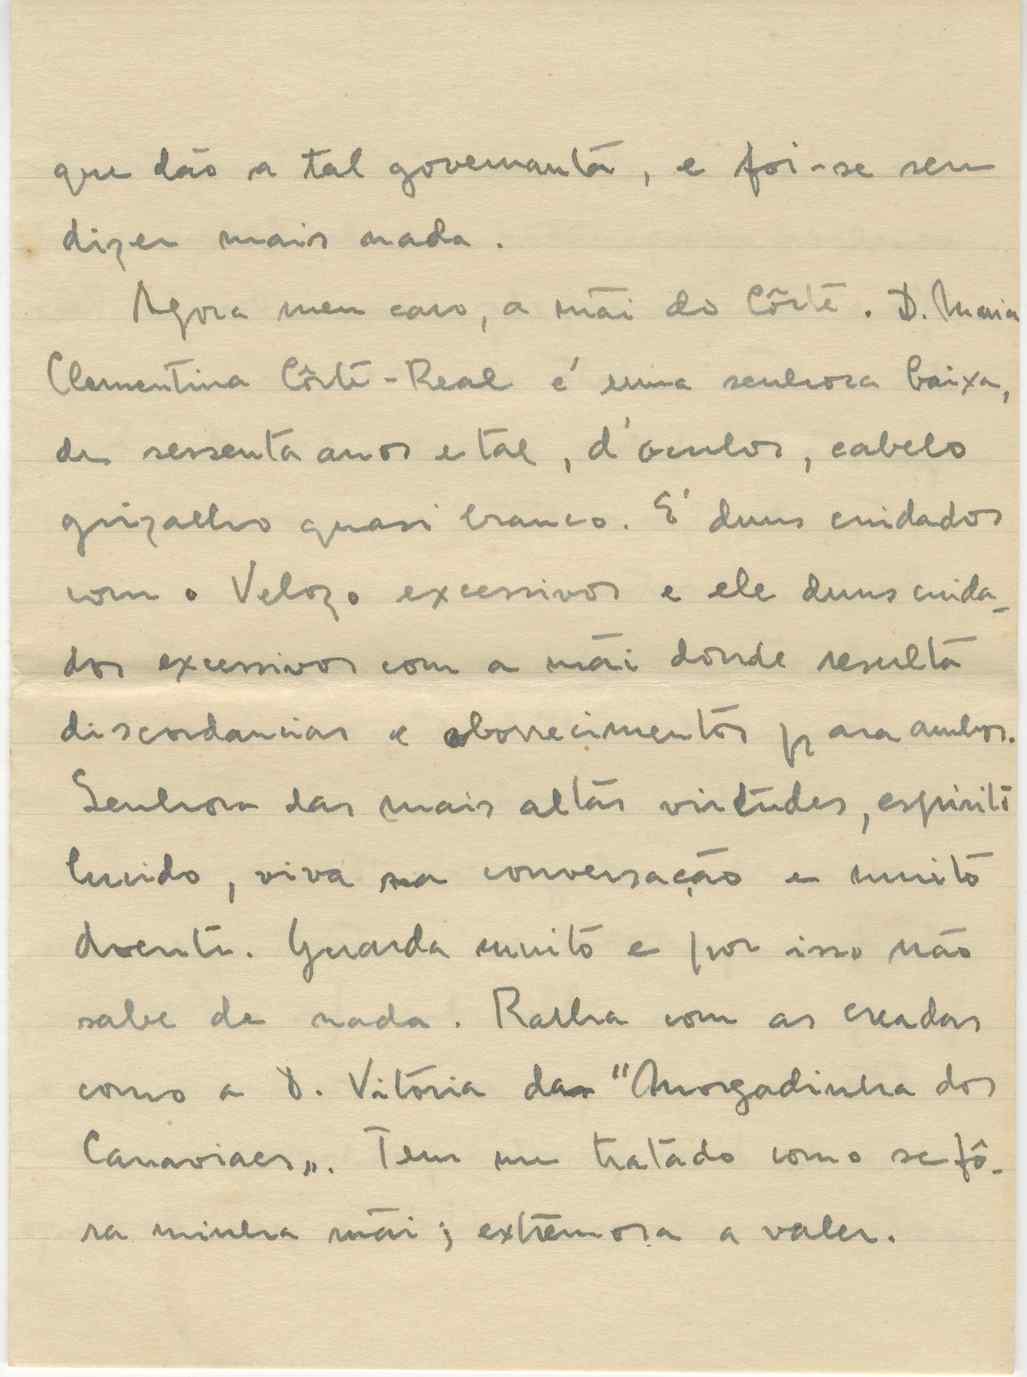 que dão a tal governanta, e foi-se sem
dizer mais nada.
Agora meu caro, a mãi do Côrte. D. Maria
Clementina Côrte-Real é uma senhora baixa,
de sessenta anos e tal, d'oculos, cabelo
grizalho quasi branco. É duns cuidados
com o Velozo excessivos e ele duns cuida-
dos excessivos com a mãi donde resulta
discordancias e aborrecimentos para ambos.
Senhora das mais altas virtudes, espirito
lucido, viva na conversação e muito
doente. Guarda muito e por isso não
sabe de nada. Ralha com as creadas
como a D. Vitória da "Morgadinha dos
Canaviaes". Tem me tratado como se fô-
ra minha mãi; extremosa a valer.